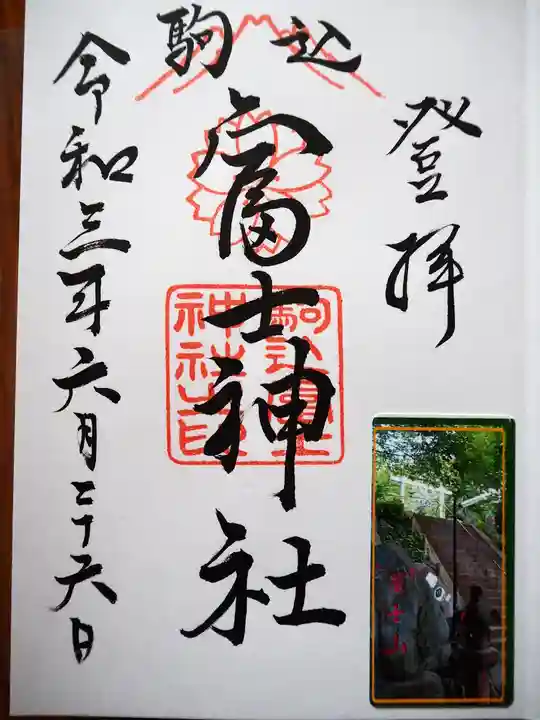 登拝
駒込
富士神社
駒込富士
神社之印
令和三年六月二十六日
富士山